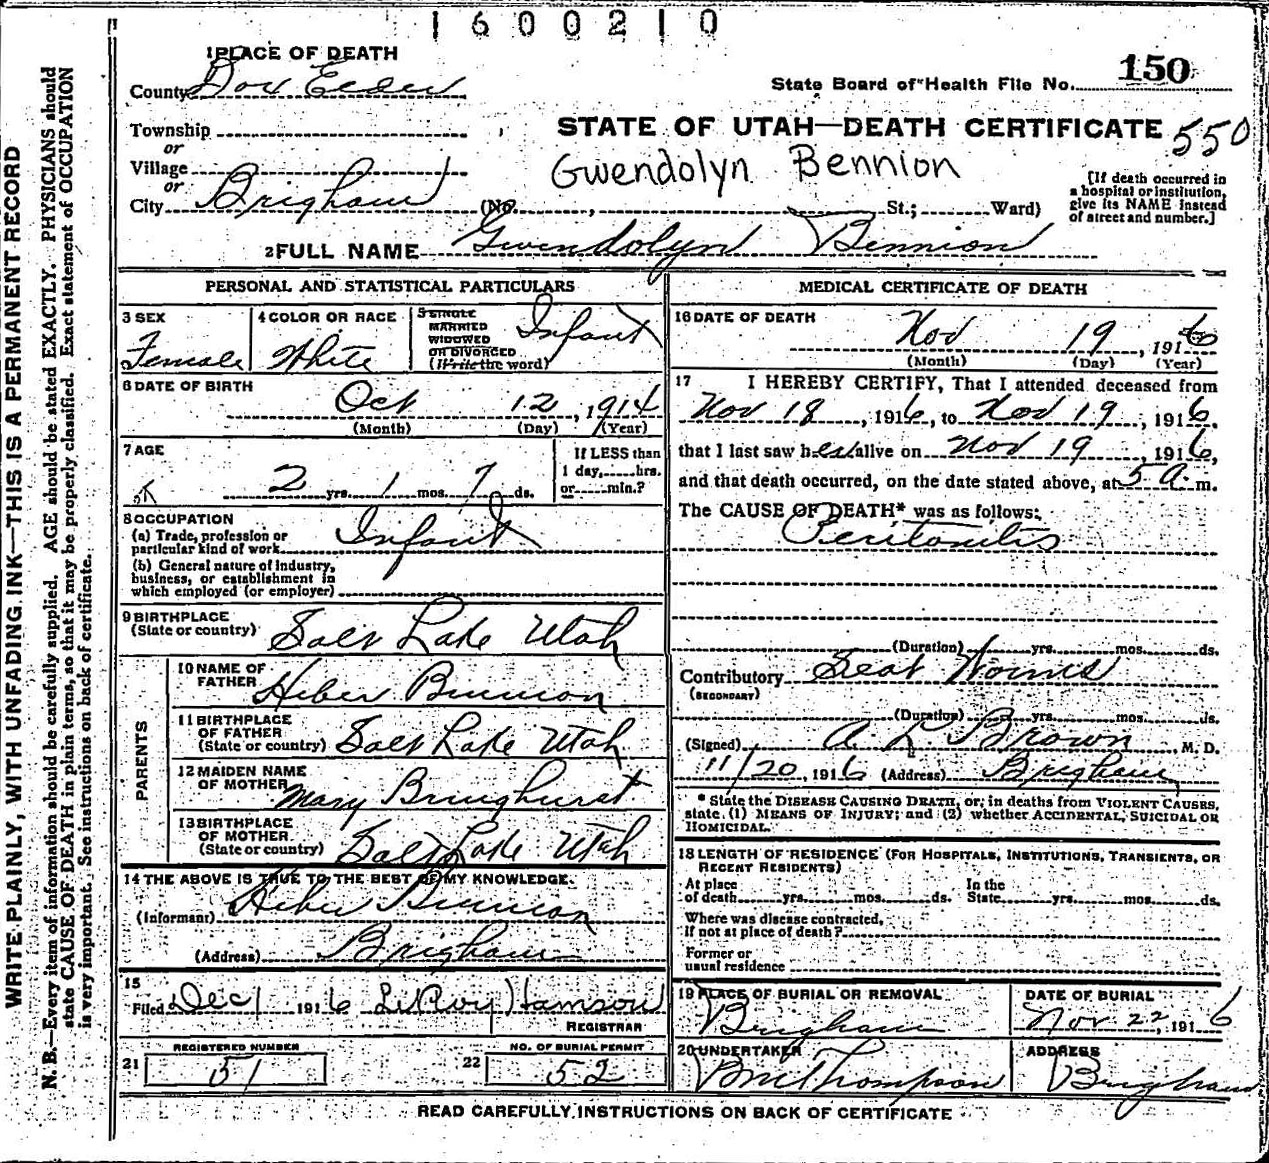 1600210
1 PLACE OF DEATH
County Box Elder
State Board of Health File No. 150
Township
or
STATE OF UTAH—DEATH CERTIFICATE 550
Village
or
Gwendolyn Bennion
City Brigham (No. , St.; Ward)
[If death occurred in a hospital or institution, give its NAME instead of street and number.]
2 FULL NAME Gwendolyn Bennion
PERSONAL AND STATISTICAL PARTICULARS
3 SEX Female
4 COLOR OR RACE White
5 SINGLE MARRIED WIDOWED OR DIVORCED (Write the word) Infant
6 DATE OF BIRTH
Oct 12, 1914
(Month) (Day) (Year)
7 AGE
2 yrs. 1 mos. 7 ds.
If LESS than 1 day, hrs. or min.?
8 OCCUPATION
(a) Trade, profession or particular kind of work Infant
(b) General nature of industry, business, or establishment in which employed (or employer)
9 BIRTHPLACE (State or country) Salt Lake Utah
PARENTS
10 NAME OF FATHER Heber Bennion
11 BIRTHPLACE OF FATHER (State or country) Salt Lake Utah
12 MAIDEN NAME OF MOTHER Mary Bringhurst
13 BIRTHPLACE OF MOTHER (State or country) Salt Lake Utah
14 THE ABOVE IS TRUE TO THE BEST OF MY KNOWLEDGE.
(Informant) Heber Bennion
(Address) Brigham
15
Filed Dec 1 1916 LeRoy
REGISTRAR
21 REGISTERED NUMBER 51
22 NO. OF BURIAL PERMIT 52
MEDICAL CERTIFICATE OF DEATH
16 DATE OF DEATH
Nov 19, 1916
(Month) (Day) (Year)
17 I HEREBY CERTIFY, That I attended deceased from
Nov 18, 1916, to Nov 19, 1916,
that I last saw her alive on Nov 19, 1916,
and that death occurred, on the date stated above, at 5 A. m.
The CAUSE OF DEATH* was as follows:
Peritonitis
(Duration) yrs. mos. ds.
Contributory Seat Worms
(SECONDARY)
(Duration) yrs. mos. ds.
(Signed) A L Brown M. D.
11/20, 1916 (Address) Brigham
* State the DISEASE CAUSING DEATH, or, in deaths from VIOLENT CAUSES, state (1) MEANS OF INJURY; and (2) whether ACCIDENTAL, SUICIDAL OR HOMICIDAL.
18 LENGTH OF RESIDENCE (FOR HOSPITALS, INSTITUTIONS, TRANSIENTS, OR RECENT RESIDENTS)
At place of death yrs. mos. ds. In the State yrs. mos. ds.
Where was disease contracted, if not at place of death?
Former or usual residence
19 PLACE OF BURIAL OR REMOVAL Brigham
DATE OF BURIAL Nov. 22, 1916
20 UNDERTAKER Thompson
ADDRESS Brigham
READ CAREFULLY INSTRUCTIONS ON BACK OF CERTIFICATE
WRITE PLAINLY, WITH UNFADING INK—THIS IS A PERMANENT RECORD
N. B.—Every item of information should be carefully supplied. AGE should be stated EXACTLY. PHYSICIANS should
state CAUSE OF DEATH in plain terms, so that it may be properly classified. Exact statement of OCCUPATION
is very important. See instructions on back of certificate.